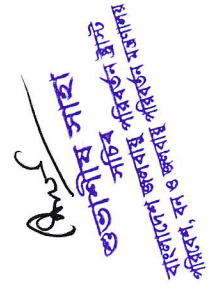 সচিব
বাংলাদেশ জলবায়ু পরিবর্তন ট্রাস্ট
পরিবেশ, বন ও জলবায়ু পরিবর্তন মন্ত্রণালয়